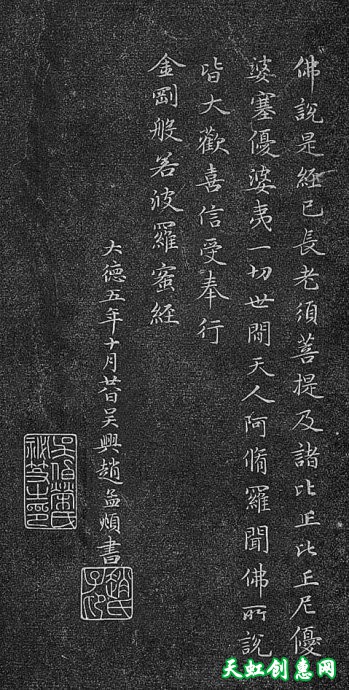 佛說是經已長老須菩提及諸比丘比丘尼優
婆塞優婆夷一切世間天人阿脩羅聞佛所說
皆大歡喜信受奉行
金剛般若波羅蜜經
大德五年十月廿日吴興趙孟頫書
吳伯榮氏
祕笈之印
天虹创惠网